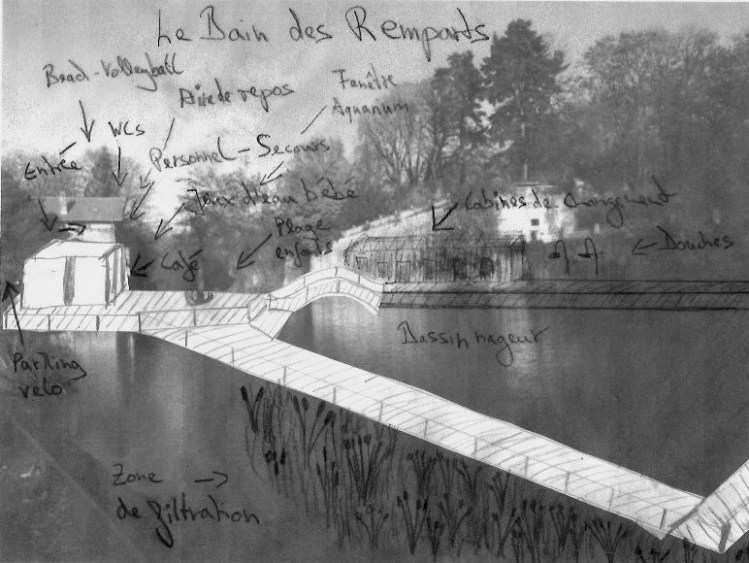 Le Bain des Remparts
Beach-Volleyball
Aire de repos
Fenêtre
Aquarium
WCs
Entrée
Personnel-Secours
Jeux d'eau bébé
Cabines de changement
Plage
enfants
Café
Douches
Bassin nageur
Parking
velo
Zone
de filtration